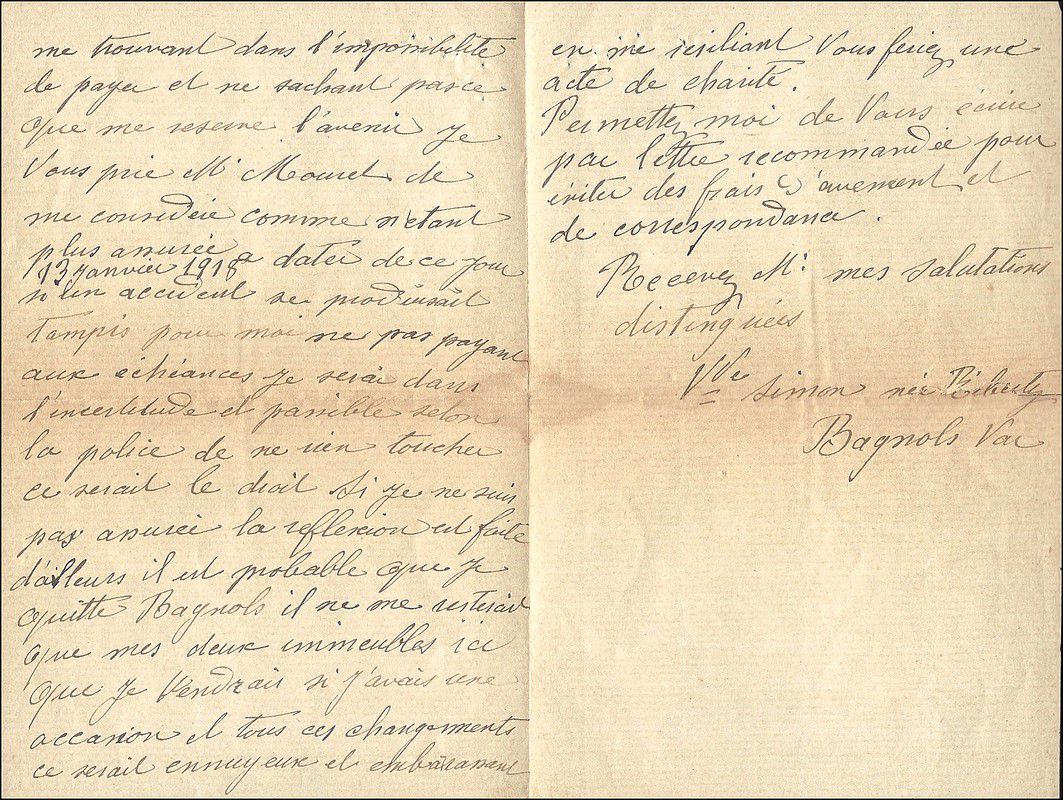 me trouvant dans l'impossibilité
de payer et ne sachant pas ce
que me reserve l'avenir je
Vous prie Mr Mouret de
me considérée comme n'étant
plus assurée
13 janvier 1918 a dater de ce jour
si un accident se produisait
tampis pour moi ne pas payant
aux échéances je serai dans
l'incertitude et passible selon
la police de ne rien toucher
ce serait le droit Si je ne suis
pas assurée la reflexion est faite
d'ailleurs il est probable que je
quitte Bagnols il ne me resterait
que mes deux immeubles ici
que je Vendrais si j'avais une
occasion et tous ces changements
ce serait ennuyeux et embarassant
en me resiliant Vous feriez une
acte de charité.
Permettez moi de Vous écrire
par lettre recommandée pour
eviter des frais d'avement et
de correspondance.
Recevez Mr mes salutations
distinguées
Vve Simon née
Bagnols Var